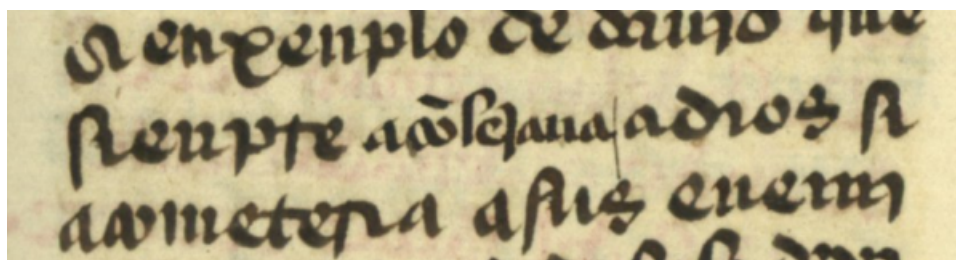 si enxenplo de dauid que
sienpre acōseiaua a dios si
acometeria a sus enemi